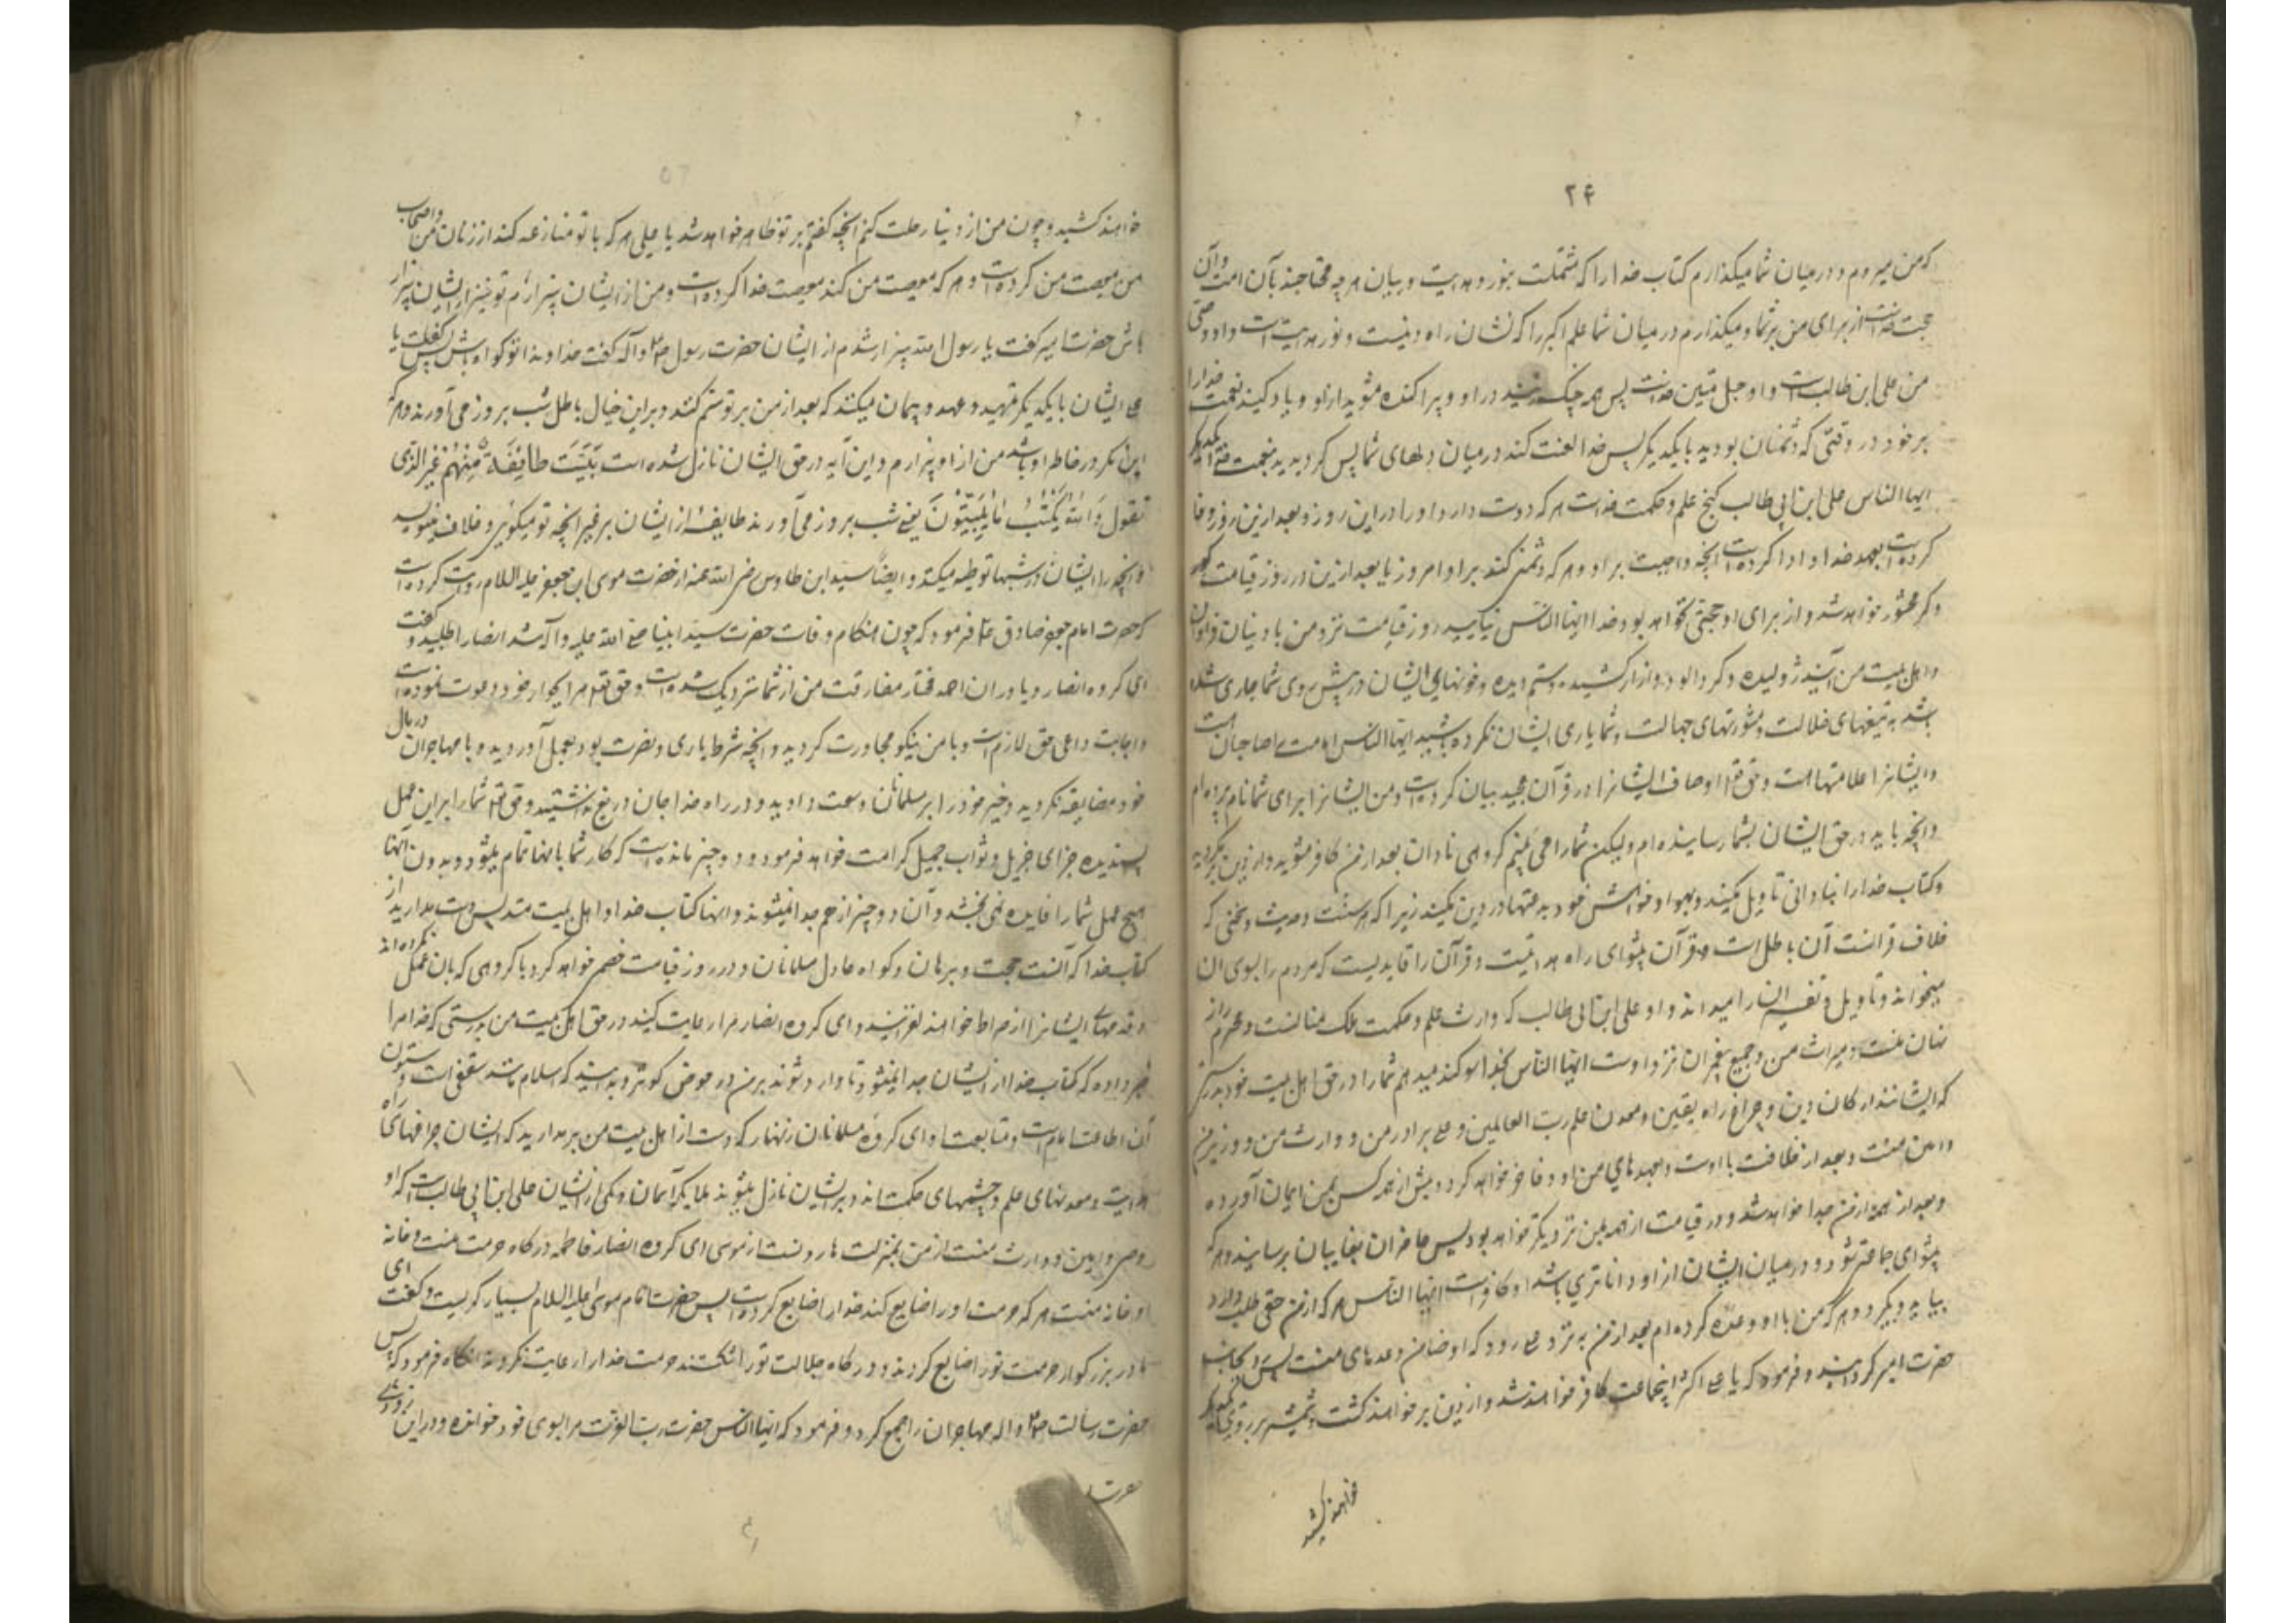 ۲۴
که من میروم و در میان شما میگذارم کتاب خدا را که مشتملست بنور و هدایت و بیان هر چه محتاجند بآن امت و آن
حجت خداست از برای من بر شما و میگذارم در میان شما علم اکبر را که نشان راه دینست و نور هدایت است و او وصی
من علی ابن طالب است و او حبل متین خداست پس همه چنگ زنید در او و پراکنده مشوید از او و یاد کنید نعمت خدا را
بر خود در وقتی که دشمنان بودید با یکدیگر پس خدا الفت کند در میان دلهای شما پس گردیدید بنعمت خدا
ایها الناس علی ابن ابی طالب گنج علم و حکمت خداست هر که دوست دارد او را در این روز و بعد از ین روز وفا
کرده است بعهد خدا و ادا کرده است آنچه واجبست بر او و هر که دشمنی کند بر او امروز یا بعد ازین در روز قیامت کور
و کر محشور خواهد شد و از برای او حجتی نخواهد بود خدا ایها الناس نیایید روز قیامت نزد من با دنیای فراوان
و اهل بیت من آیند ژولیده و گردآلود و آزار کشیده و ستم دیده و خونهای ایشان در پیش روی شما جاری شده
باشد به تیغهای ضلالت و مشورتهای جهالت و شما یاری ایشان نکرده باشید ایها الناس امامت را صاحبان است
و ایشانرا علامتها است و حق تعالی اوصاف ایشانرا در قرآن مجید بیان کرده است و من ایشانرا برای شما نام برده ام
و آنچه باید در حق ایشان بشما رسانیده ام ولیکن شما را می بینم گروهی نادان بعد از من کافر مشوید و از دین برنگردید
و کتاب خدا را بنادانی تاویل مکنید و بهوا و خواهش خود بدعتها در دین مکنید زیرا که هر سنت و حدیث و سخنی که
خلاف قرانست آن باطل است و قرآن پیشوای راه هدایتست و قرآن را قایدیست که مردم را بسوی آن
میخواند و تاویل و تفسیر آن را میداند و او علی ابن ابی طالب که وارث علم و حکمت و محرم راز
نهان منست و میراث من و جمیع پیغمبران نزد اوست ایها الناس بخدا سوگند میدهم شما را در حق اهل بیت خود بدرستی
که ایشانند ارکان دین و چراغ راه یقین و معدن علم رب العالمین و علی برادر من و وارث من و وزیر من
و امین منست و بعد از خلافت با اوست و بعهدهای من او وفا خواهد کرد و پیش از همه کس بمن ایمان آورده
و بعد از همه از من جدا خواهد شد و در قیامت از همه بمن نزدیکتر خواهد بود پس حاضران بغایبان برسانید و هر که
پیشوای جماعتی شود و در میان ایشان از او داناتری باشد او کافر است ایها الناس هر که از من حقی طلب دارد
بیاید و بگیرد و هر که من با او وعده کرده ام بعد از من به نزد علی رود که او ضامن وعدهای منست پس بجانب
حضرت امیر گردانید و فرمود که یا علی اکثر اینجماعت کافر خواهند شد و از دین بر خواهند گشت و شمشیر بر روی یکدیگر
خواهند کشید
خواهند کشید و چون من از دنیا رحلت کنم آنچه گفتم بر تو ظاهر خواهد شد یا علی هر که با تو منازعه کند از زنان من و اصحاب
من معصیت من کرده است و هر که معصیت من کند معصیت خدا کرده است و من از ایشان بیزارم تو نیز از ایشان بیزار
باش حضرت امیر گفت یا رسول الله بیزار شدم از ایشان حضرت رسول ص و آله گفت خداوندا تو گواه باش پس گفت یا
علی ایشان با یکدیگر تمهید و عهد و پیمان میکنند که بعد از من بر تو ستم کنند و براین خیال باطل شب بروز می آورند و هر که
این مکر در خاطر او باشد من از او بیزارم و این آیه در حق ایشان نازل شده است بَیَّتَ طَائِفَةٌ مِنْهُمْ غَیْرَ الَّذِی
تَقُولُ وَ اللّٰهُ یَکْتُبُ مَا یُبَیِّتُونَ یعنی شب بروز می آورند طایفهٔ از ایشان بر غیر آنچه تو میگوئی و خدا مینویسد
آنچه را ایشان در شبها توطیه میکنند و ایضا سید ابن طاوس رضی الله عنه از حضرت موسی ابن جعفر علیه السلام روایت کرده است
که حضرت امام جعفر صادق ع فرمود که چون هنگام وفات حضرت سید انبیا صلی الله علیه و آله شد انصار را طلبید و گفت
ای گروه انصار و یاوران احمد مختار مفارقت من از شما نزدیک شده است و حق تعالی مرا بجوار خود دعوت نموده است
و اجابت داعی حق لازم است و با من نیکو مجاورت کردید و آنچه شرط یاری و نصرت بود بعمل آوردید و با مهاجران در مال
خود مضایقه نکردید و خیر خود را بر مسلمانان وسعت دادید و در راه خدا جان دریغ نداشتید و حق تعالی شما را بر این عمل
پسندیده جزای جزیل و ثواب جمیل کرامت خواهد فرمود و دو چیز مانده است که کار شما بآنها تمام میشود و بدون آنها
هیچ عمل شما را فایده نمی بخشد و آن دو چیز از هم جدا نمیشوند و آنها کتاب خدا و اهل بیت منند پس دست مدارید از
کتاب خدا که آنست حجت و برهان و گواه عادل مسلمانان و در روز قیامت خصمی خواهد کرد با گروهی که بآن عمل نکرده اند
و قدمهای ایشانرا از صراط خواهند لغزانید و ای گروه انصار مرا رعایت کنید در حق اهل بیت من بدرستی که خدا مرا
خبر داده که کتاب خدا از ایشان جدا نمیشود تا وارد شوند بر من در حوض کوثر و بدانید که اسلام مانند سقفی است و ستون
آن اطاعت امام است و متابعت او ای گروه مسلمانان زنهار که دست از اهل بیت من برمدارید که ایشان چراغهای راه
هدایت و معدنهای علم و چشمهای حکمت اند و بر ایشان نازل میشوند ملایکه آسمان و یکی از ایشان علی ابن ابی طالب است که او
وصی و امین و وارث منست از من بمنزلت هارونست از موسی ای گروه انصار فاطمه درگاه حرمت منست و خانه
او خانه منست هر که حرمت او را ضایع کند خدا را ضایع کرده است پس حضرت امام موسی علیه السلام بسیار گریست و گفت ای
مادر بزرگوار حرمت تو را ضایع کردند و درگاه جلالت تو را شکستند حرمت خدا را رعایت نکردند آنگاه فرمود که پس
حضرت رسالت ص و اله مهاجران را جمع کرد و فرمود که ایها الناس حضرت رب العزت مرا بسوی خود خوانده و در این
حضرت